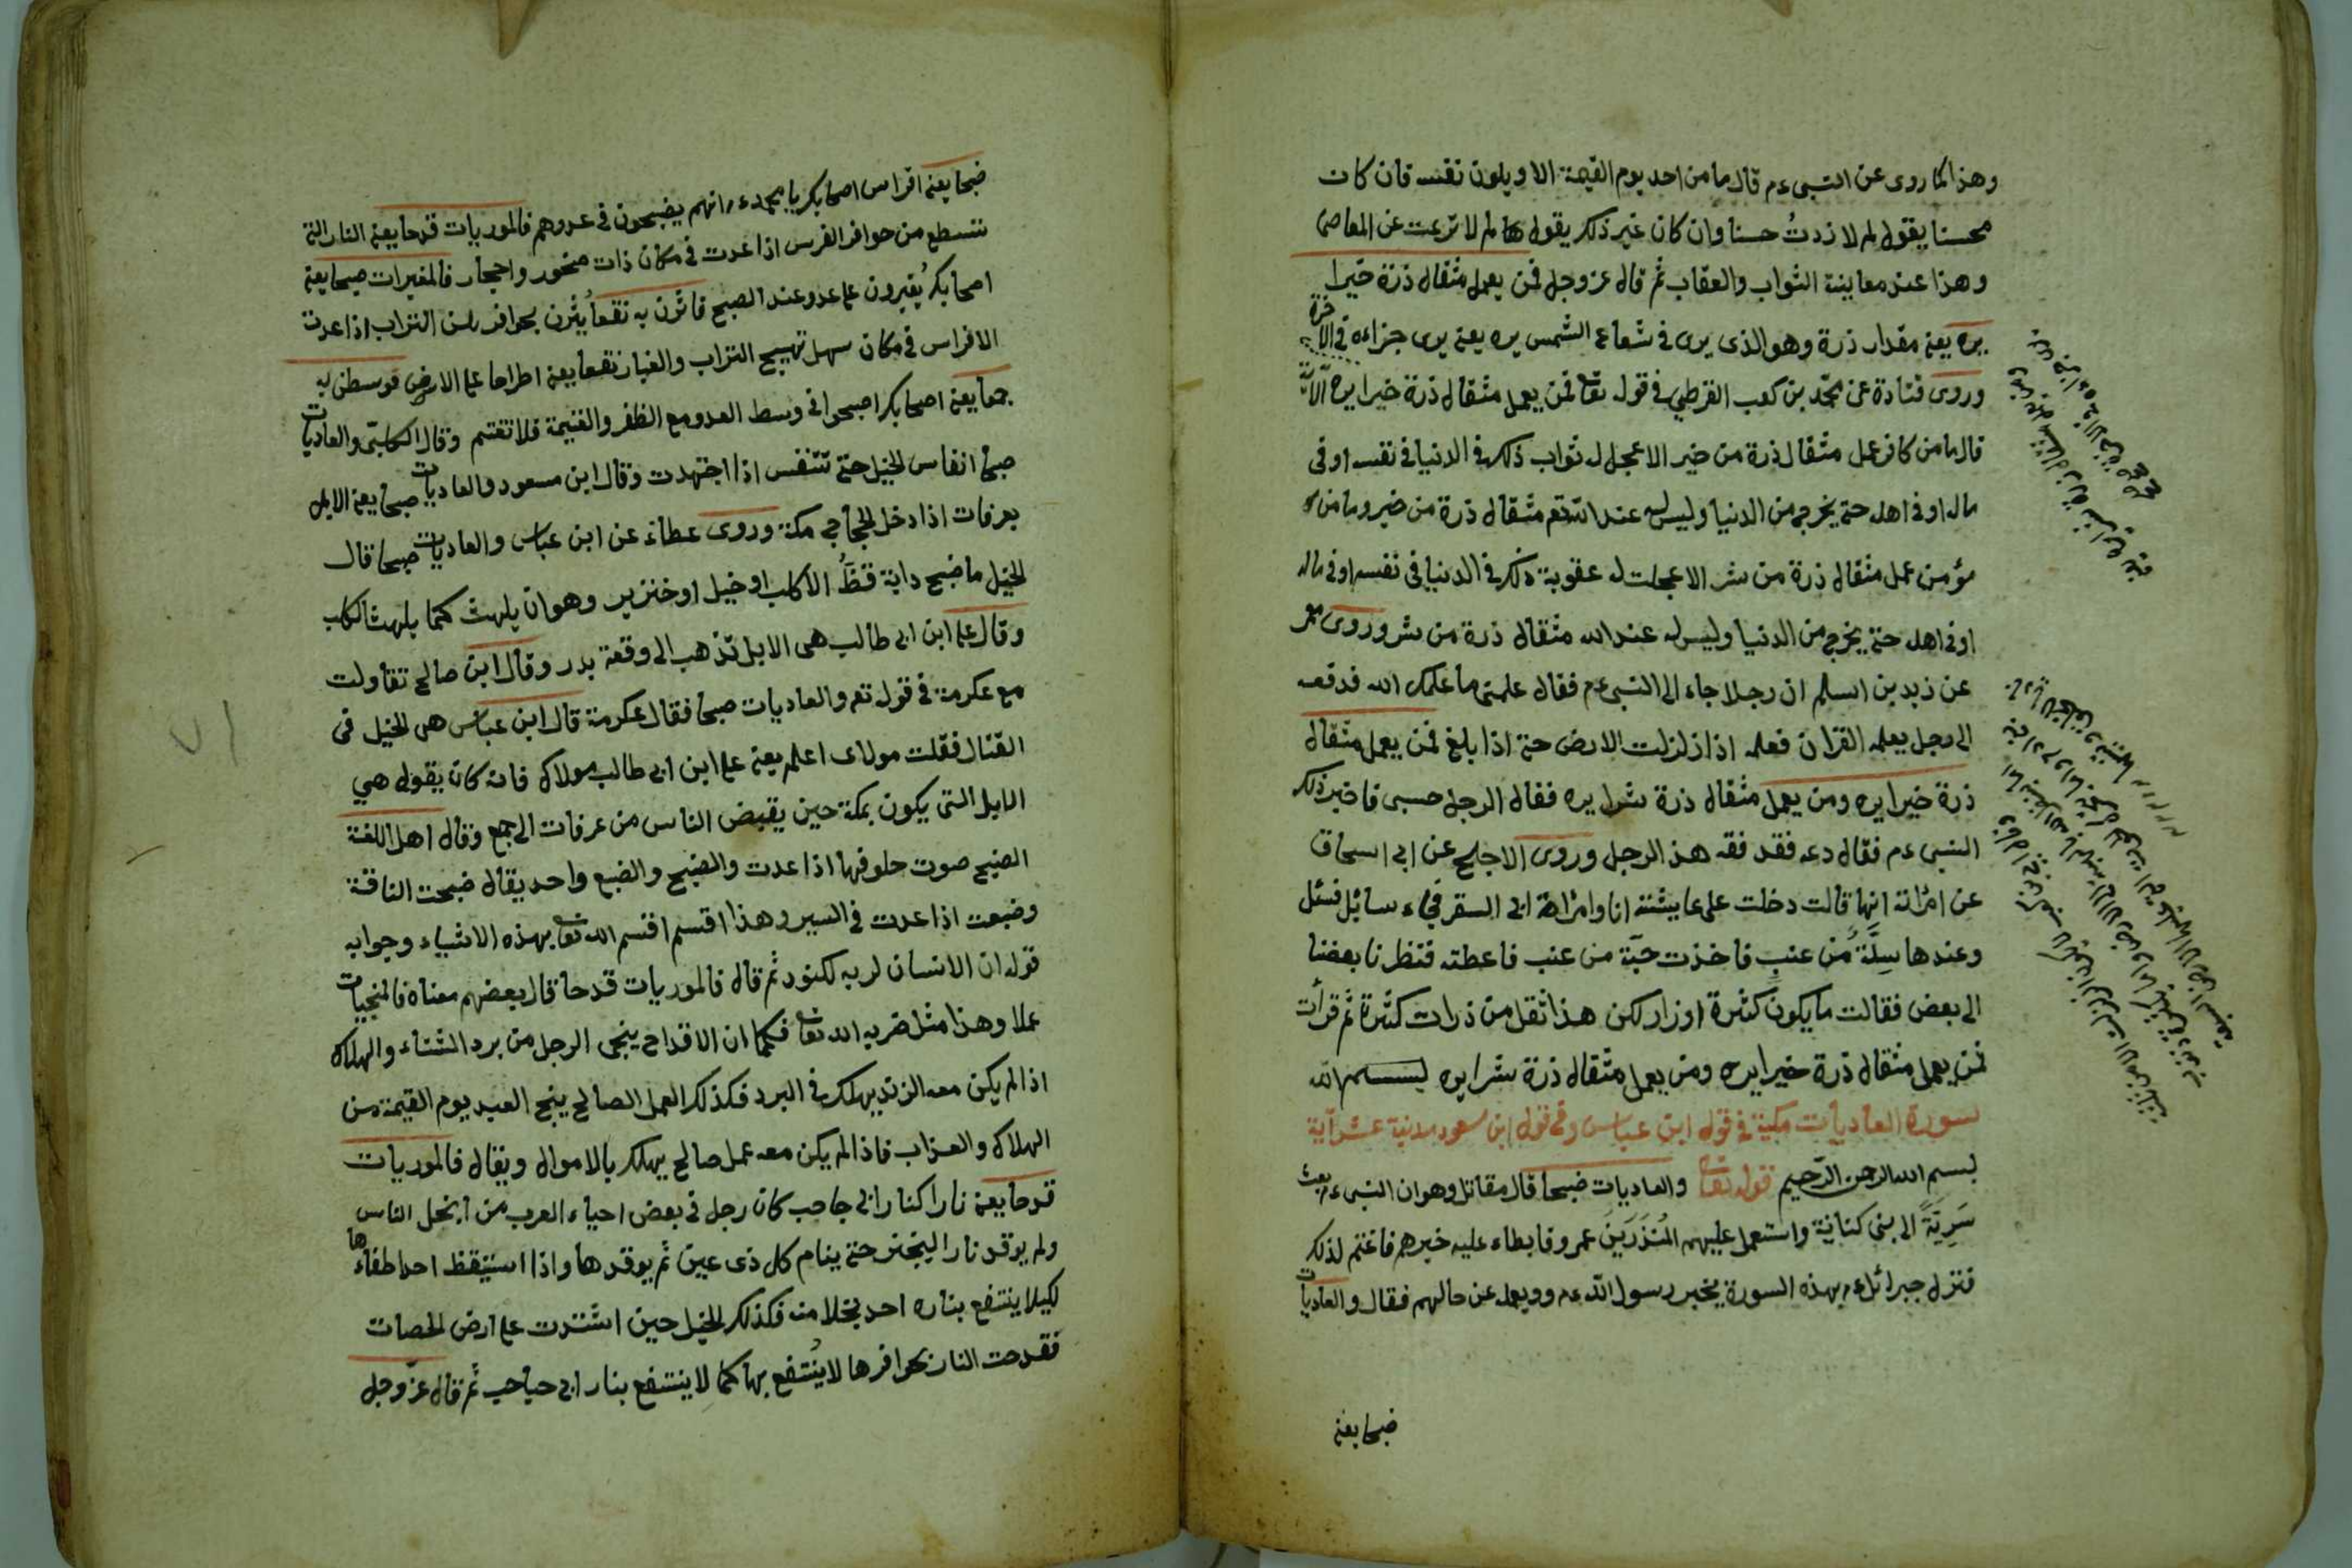 وهذا كما روى عن النبى ءم قال ما من احد يوم القيمة الا ويلون نفسه فان كان
محسنا يقول لم لا زدتُ حسنا وان كان غير ذلك يقول لم لا نزعت عن المعاصى
وهذا عند معاينة الثواب والعقاب ثم قال عز وجل فمن يعمل مثقال ذرة خيرا
يره يعنى مقدار ذرة وهو الذى يرى فى شعاع الشمس يره يعنى يرى جزاءه فى الآخرة
وروى قتادة عن محمد بن كعب القرظي فى قوله تعا فمن يعمل مثقال ذرة خيرا يره الآية
قال ما من كافر عمل مثقال ذرة من خير الا عجل له ثواب ذلك فى الدنيا فى نفسه او فى
ماله او فى اهله حتى يخرج من الدنيا وليس له عند الله تعم مثقال ذرة من خير وما من
مؤمن عمل مثقال ذرة من شر الا عجلت له عقوبة ذلك فى الدنيا فى نفسه او فى ماله
او فى اهله حتى يخرج من الدنيا وليس له عند الله مثقال ذرة من شر وروى معمر
عن زيد بن اسلم ان رجلا جاء الى النبى ءم فقال علمنى ما علمك الله فدفعه
الى رجل يعلمه القرآن فعلمه اذا زلزلت الارض حتى اذا بلغ فمن يعمل مثقال
ذرة خيرا يره ومن يعمل مثقال ذرة شرا يره فقال الرجل حسبى فاخبر ذلك
النبى ءم فقال دعه فقد فقه هذا الرجل وروى الاجلح عن ابى اسحاق
عن امرأته انها قالت دخلت على عايشة انا وامرأة ابى السفر فجاء سائل فسئل
وعندها سِلَّةٌ من عنب فاخذت حبّة من عنب فاعطته فنظرنا بعضنا
الى بعض فقالت ما يكون كثرة اوزار لكن هذا اثقل من ذرات كثيرة ثم قرأت
فمن يعمل مثقال ذرة خيرا يره ومن يعمل مثقال ذرة شرا يره بسم الله
سورة العاديات مكية فى قول ابن عباس وفى قول ابن مسعود مدنية عشر آية
بسم الله الرحمن الرّحيم قوله تعا والعاديات ضبحا قال مقاتل وهو ان النبى ءم بعث
سَرِيَّةً الى بنى كنانة واستعمل عليهم المُنذَرَينَ عمرو فابطاء عليه خبرهم فاغتم لذلك
فنزل جبرائل ءم بهذه السورة يخبر رسول الله ءم ويعمله عن حالهم فقال والعاديات
ضبحا يعنى
ضبحا يعنى افراس اصحابك يا محمد ءم انهم يضبحون فى عدوهم فالموريات قدحا يعنى النار التى
تنسطع من حوافر الفرس اذا عدت فى مكان ذات صخور واحجار فالمغيرات صبحا يعنى
اصحابك يُغيرون على عدو عند الصبح فاثرن به نقعا يُثرن بحوافرهن التراب اذا عدت
الافراس فى مكان سهل تهييج التراب والغبار نقعا يعنى اطراحا على الارض فوسطن به
جمعا يعنى اصحابك اصبحوا فى وسط العدو مع الظفر والغنيمة فلا تغتم وقال الكلبى والعاديات
صبحا انفاس الخيل حتى تتنفس اذا اجتهدت وقال ابن مسعود والعاديات صبحا يعنى الابل
بعرفات اذا دخل الحجاج مكة وروى عطاء عن ابن عباس والعاديات صبحا قال
الخيل ما ضبح دابة قطُّ الا كلب او خيل او خنزير وهو ان يلهث كما يلهث الكلب
وقال على ابن ابى طالب هى الابل تذهب الى وقعة بدر وقال ابن صالح تقاولت
مع عكرمة فى قوله تعم والعاديات صبحا فقال عكرمة قال ابن عباس هى الخيل فى
القتال فقلت مولاى اعلم يعنى على ابن ابى طالب مولاك فانه كان يقول هي
الابل التى يكون بمكة حين يفيض الناس من عرفات الى جمع وقال اهل اللغة
الضبح صوت حلوقها اذا عدت والضبح والضبع واحد يقال ضبحت الناقة
وضبعت اذا عدت فى السير وهذا اقتسم اقتسم الله تعا بهذه الاشياء وجوابه
قوله ان الانسان لربه لكنود ثم قال فالموريات قدحا قال بعضهم معناه فالمنجيات
عملا وهذا مثل ضربه الله تعا فكما ان الاقداح ينجى الرجل من برد الشتاء والهلاك
اذا لم يكن معه الزند يهلك فى البرد فكذلك العمل الصالح ينجى العبد يوم القيمة من
الهلاك والعذاب فاذا لم يكن معه عمل صالح يهلك بالاموال ويقال فالموريات
قدحا يعنى نارا كنار ابى حاحب كان رجل فى بعض احياء العرب من ابخل الناس
ولم يوقد نارا ليخبز حتى ينام كل ذى عين ثم يوقدها واذا استيقظ احد اطفاءها
لكيلا ينتفع بناره احد بخلا منه فكذلك الخيل حين اشتدت على ارض الحصات
فقدحت النار بحوافرها لا يُنتفع بها كما لا ينتفع بنار ابى حباحب ثم قال عزّ وجل